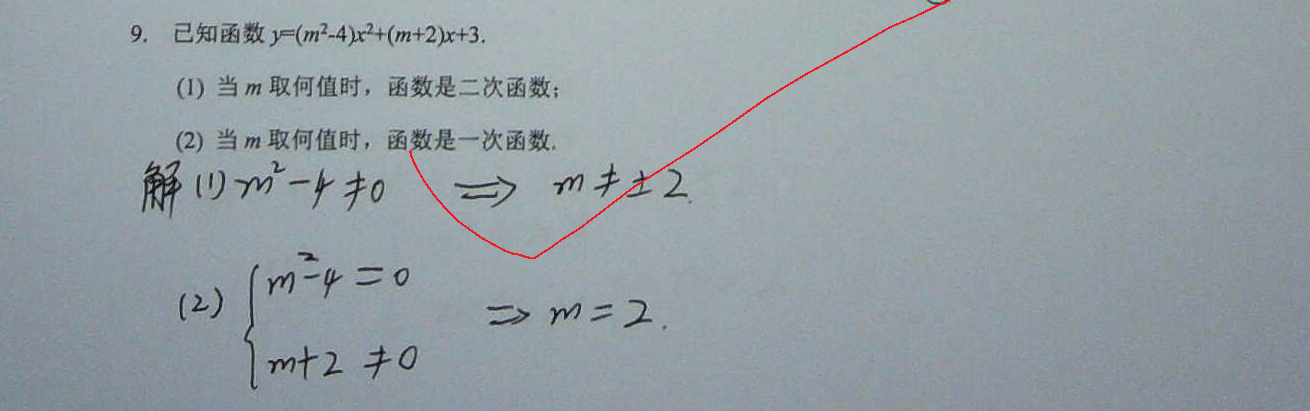 9. 已知函数 y=(m²-4)x²+(m+2)x+3.
(1) 当 m 取何值时，函数是二次函数；
(2) 当 m 取何值时，函数是一次函数.
解 (1) m²-4≠0 ⇒ m≠±2.
(2) { m²-4=0
m+2≠0 ⇒ m=2.